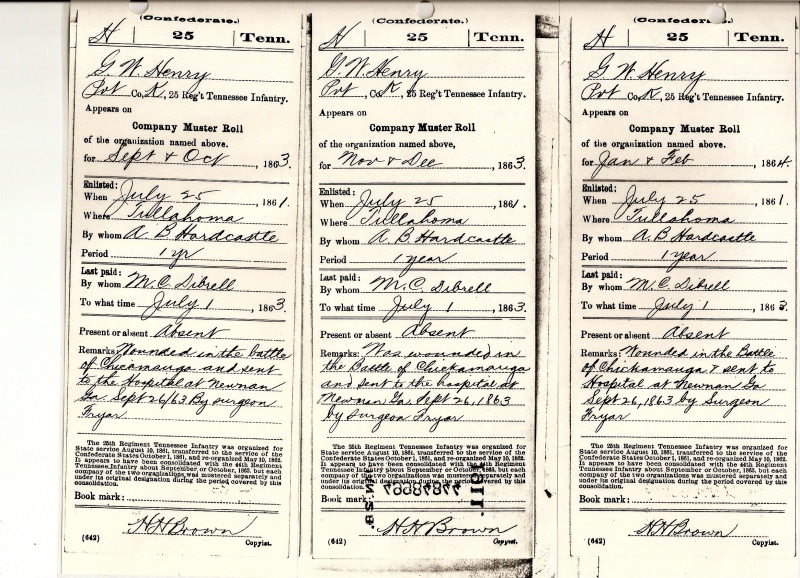 (Confederate.)
H | 25 | Tenn.
G. W. Henry
Pvt, Co. K, 25 Reg't Tennessee Infantry.
Appears on
Company Muster Roll
of the organization named above,
for Sept & Oct, 1863.
Enlisted:
When July 25, 1861.
Where Tullahoma
By whom A. B. Hardcastle
Period 1 yr
Last paid:
By whom M. C. Dibrell
To what time July 1, 1863.
Present or absent Absent
Remarks: Wounded in the battle
of Chicamauga and sent
to the Hospital at Newnan
Ga. Sept 26/63 By surgeon
Fryar.
The 25th Regiment Tennessee Infantry was organized for
State service August 10, 1861, transferred to the service of the
Confederate States October 1, 1861, and re-organized May 10, 1862.
It appears to have been consolidated with the 44th Regiment
Tennessee Infantry about September or October, 1863, but each
company of the two organizations was mustered separately and
under its original designation during the period covered by this
consolidation.
Book mark:
H H Brown
(642) Copyist.
(Confederate.)
H | 25 | Tenn.
G. W. Henry
Pvt, Co. K, 25 Reg't Tennessee Infantry.
Appears on
Company Muster Roll
of the organization named above,
for Nov & Dec, 1863.
Enlisted:
When July 25, 1861.
Where Tullahoma
By whom A. B. Hardcastle
Period 1 year
Last paid:
By whom M. C. Dibrell
To what time July 1, 1863.
Present or absent Absent
Remarks: Was wounded in
the Battle of Chickamauga
and sent to the hospital at
Newnan Ga. Sept. 26, 1863
by Surgeon Fryar
The 25th Regiment Tennessee Infantry was organized for
State service August 10, 1861, transferred to the service of the
Confederate States October 1, 1861, and re-organized May 10, 1862.
It appears to have been consolidated with the 44th Regiment
Tennessee Infantry about September or October, 1863, but each
company of the two organizations was mustered separately and
under its original designation during the period covered by this
consolidation.
Book mark:
H H Brown
(642) Copyist.
(Confederate.)
H | 25 | Tenn.
G. W. Henry
Pvt, Co. K, 25 Reg't Tennessee Infantry.
Appears on
Company Muster Roll
of the organization named above,
for Jan & Feb, 1864.
Enlisted:
When July 25, 1861.
Where Tullahoma
By whom A. B. Hardcastle
Period 1 year.
Last paid:
By whom M. C. Dibrell
To what time July 1, 1863.
Present or absent Absent
Remarks: Wounded in the Battle
of Chickamauga & sent to
Hospital at Newnan Ga
Sept 26, 1863 by Surgeon
Fryar
The 25th Regiment Tennessee Infantry was organized for
State service August 10, 1861, transferred to the service of the
Confederate States October 1, 1861, and re-organized May 10, 1862.
It appears to have been consolidated with the 44th Regiment
Tennessee Infantry about September or October, 1863, but each
company of the two organizations was mustered separately and
under its original designation during the period covered by this
consolidation.
Book mark:
H H Brown
(642) Copyist.